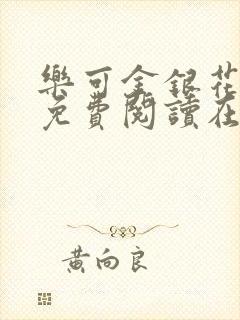 樂可金銀花
免費閱讀在
黃向良